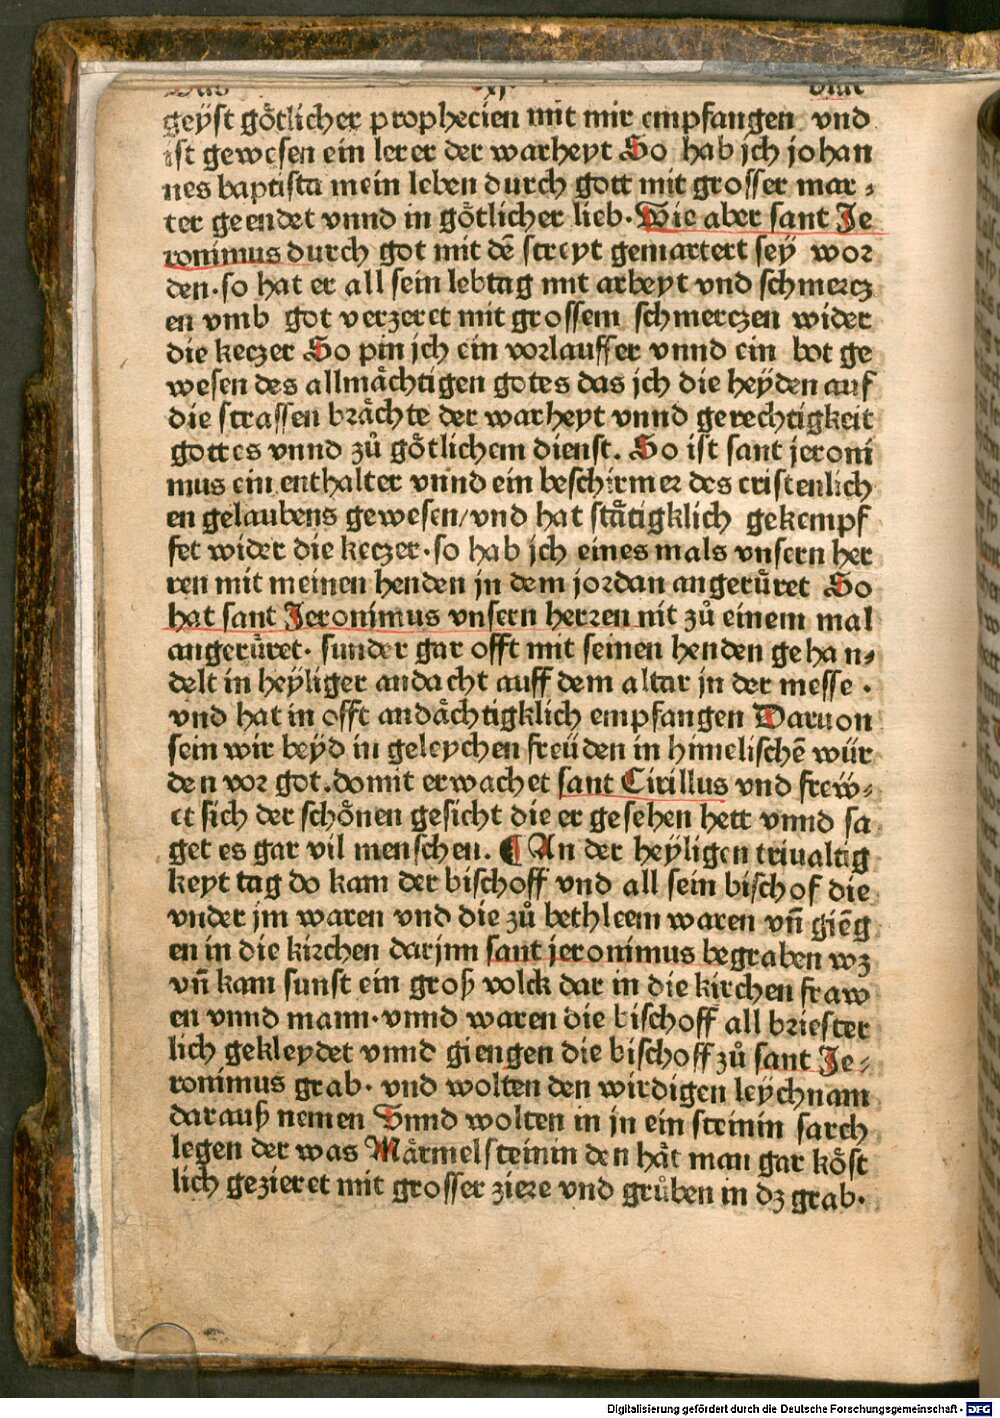 Das xj. blat
geyst gőtlicher prophecien mit mir empfangen vnd
ist gewesen ein lerer der warheyt So hab jch johan
nes baptista mein leben durch gott mit grosser mar⸗
ter geendet vnnd in gőtlicher lieb. Wie aber sant Je
ronimus durch got mit dē streyt gemartert sey wor
den. so hat er all sein lebtag mit arbeyt vnd schmercz
en vmb got verzeret mit grossem schmerczen wider
die keczer So pin jch ein vorlauffer vnnd ein bot ge
wesen des allmåchtigen gotes das jch die heyden auf
die strassen bråchte der warheyt vnnd gerechtigkeit
gottes vnnd zů gőtlichem dienst. So ist sant jeroni
mus ein enthalter vnnd ein beschirmer des cristenlich
en gelaubens gewesen/vnd hat ståtigklich gekempf
fet wider die keczer. so hab jch eines mals vnsern her
ren mit meinen henden jn dem jordan angerűret So
hat sant Jeronimus vnsern herren nit zů einem mal
angerűret. sunder gar offt mit seinen henden gehan⸗
delt in heyliger andacht auff dem altar jn der messe.
vnd hat in offt andåchtigklich empfangen Daruon
sein wir beyd in geleychen freűden in himelischē wűr
den vor got. domit erwachet sant Cirillus vnd frew⸗
et sich der schőnen gesicht die er gesehen hett vnnd sa
get es gar vil menschen. ¶ An der heyligen triualtig
keyt tag do kam der bischoff vnd all sein bischof die
vnder jm waren vnd die zů bethleem waren vn̄ giēg
en in die kirchen darjnn sant jeronimus begraben wz
vn̄ kam sunst ein groß volck dar in die kirchen fraw
en vnnd mann. vnnd waren die bischoff all briester
lich gekleydet vnnd giengen die bischoff zů sant Je⸗
ronimus grab. vnd wolten den wirdigen leychnam
darauß nemen Vnnd wolten in jn ein steinin sarch
legen der was Mårmelsteinin den håt man gar kőst
lich gezieret mit grosser ziere vnd grůben in dz grab.
Digitalisierung gefördert durch die Deutsche Forschungsgemeinschaft - DFG